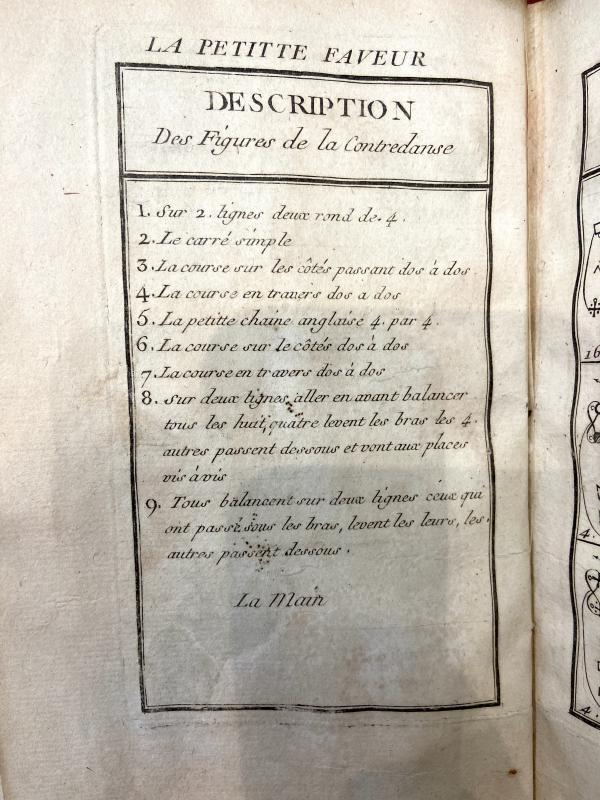 LA PETITTE FAVEUR
DESCRIPTION
Des Figures de la Contredanse
1. Sur 2. lignes deux rond de. 4.
2. Le carré simple
3. La course sur les côtés passant dos à dos
4. La course en travers dos a dos
5. La petitte chaine anglaise 4. par 4.
6. La course sur le côtés dos à dos
7. La course en travers dos à dos
8. Sur deux lignes, aller en avant balancer
tous les huit, quatre levent les bras les 4.
autres passent dessous et vont aux places
vis à vis
9. Tous balancent sur deux lignes ceux qui
ont passé sous les bras, levent les leurs, les.
autres passent dessous.
La Main
16
4.
4.